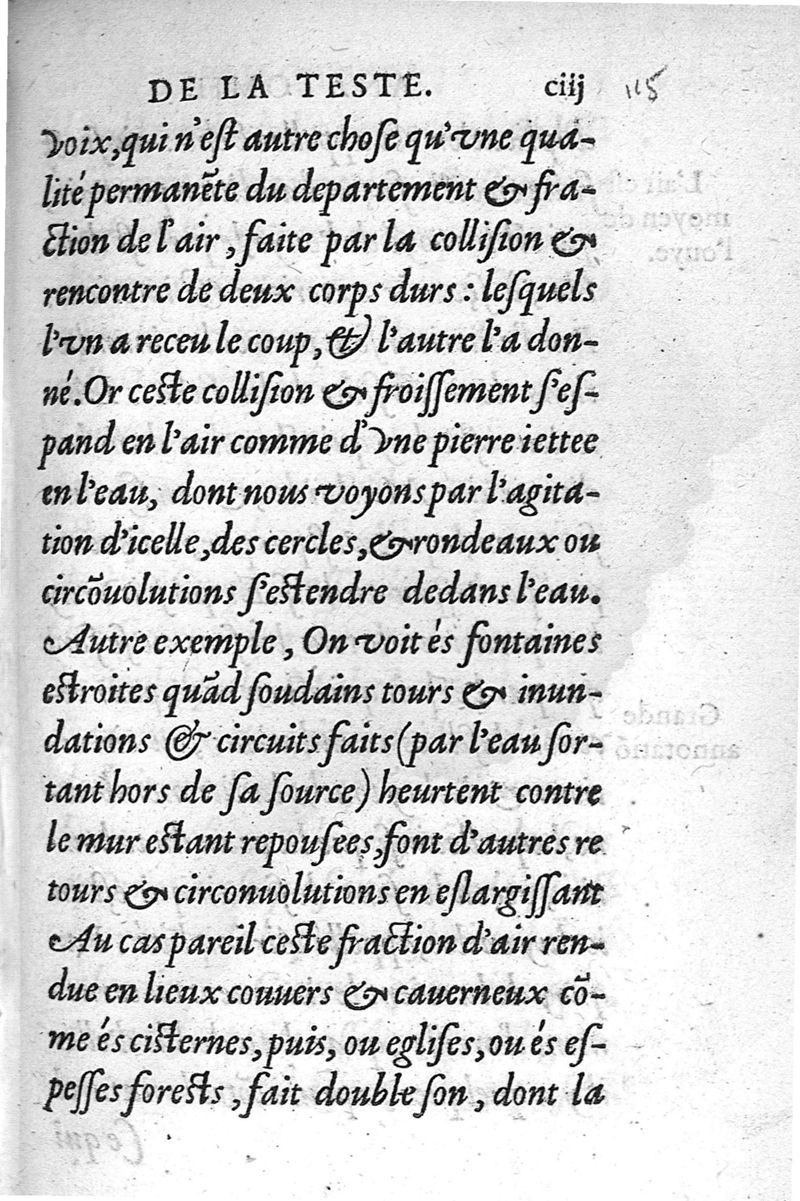 DE LA TESTE. ciiij 115
voix, qui n'eſt autre choſe qu'vne qua-
lité permanẽte du departement & fra-
ction de l'air, faite par la colliſion &
rencontre de deux corps durs : leſquels
l'vn a receu le coup, & l'autre l'a don-
né. Or ceſte colliſion & froiſſement ſ'eſ-
pand en l'air comme d'vne pierre iettee
en l'eau, dont nous voyons par l'agita-
tion d'icelle, des cercles, & rondeaux ou
circõuolutions ſ'eſtendre dedans l'eau.
Autre exemple, On voit és fontaines
eſtroites quãd ſoudains tours & inun-
dations & circuits faits (par l'eau ſor-
tant hors de ſa ſource) heurtent contre
le mur eſtant repouſees, font d'autres re
tours & circonuolutions en eſlargiſſant
Au cas pareil ceſte fraction d'air ren-
due en lieux couuers & cauerneux cõ-
me és ciſternes, puis, ou egliſes, ou és eſ-
peſſes foreſts, fait double ſon, dont la